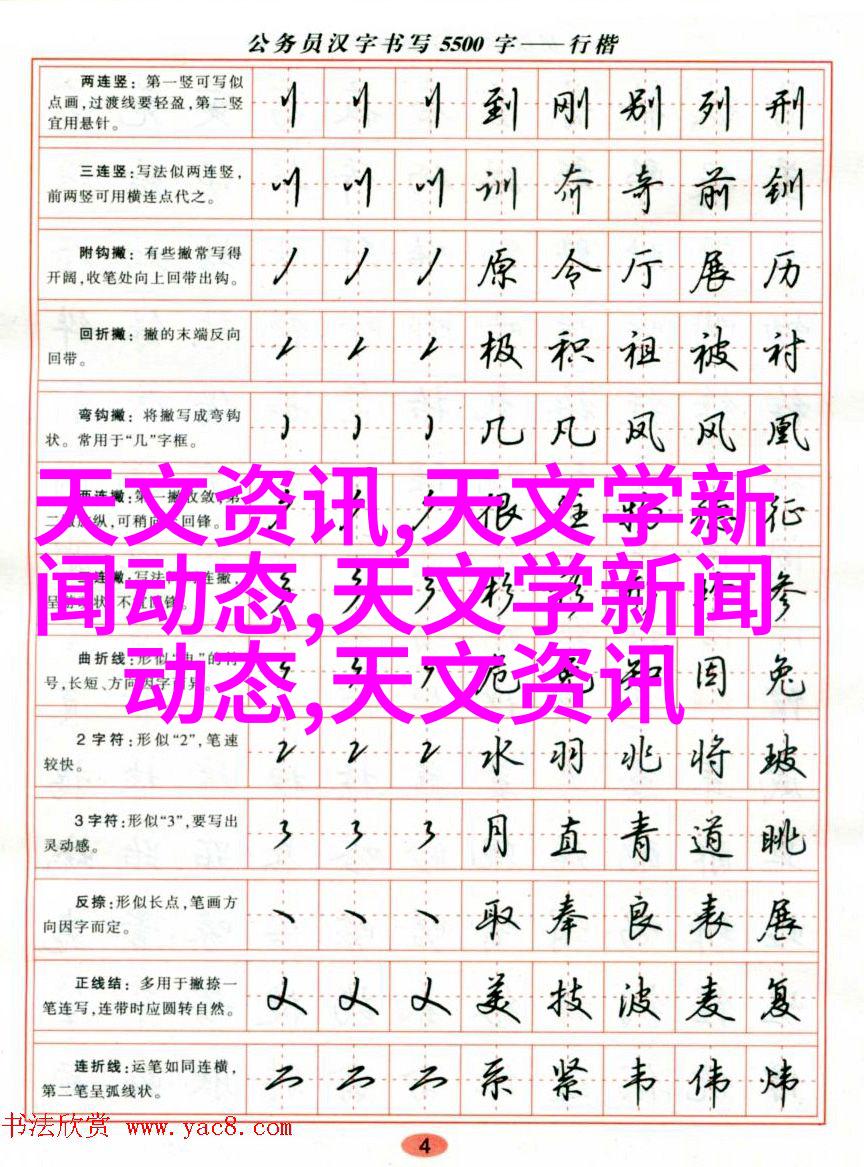 公务员汉字书写5500字——行楷
两连竖：第一竖可写似
点画，过渡线要轻盈，第二竖
宜用悬针。
到 刚 别 列 刑
三连竖：写法似两连竖，
前两竖可用横连点代之。
训 奔 奇 前 钏
附钩撇：有些撇常写得
开阔，收笔处向上回带出钩。
原 令 厅 展 历
回折撇：撇的末端反向
回带。
极 积 祖 被 衬
弯钩撇：将撇写成弯钩
状。常用于“几”字框。
几 凡 凤 风 凰
两连撇：第一撇收敛，第
纵，可稍回锋。
很 征
天文资讯,天文学新
闻动态,天文学新闻
动态,天文资讯
三连撇：写法连撇，
杉 参
曲折线：形似
号，长短、方向因字而异。
危 因 兔
2字符：形似“2”，笔速
较快。
水 羽 兆 将 玻
3字符：形似“3”，要写出
灵动感。
月 直 青 道 眺
反捺：形似长点，笔画方
向因字而定。
取 奉 良 表 展
正线结：多用于撇捺一
笔连写，连带时应圆转自然。
美 技 波 麦 复
连折线：运笔如同连横，
第二笔呈弧线状。
系 紧 韦 伟 炜
书法欣赏 www.yac8.com
4